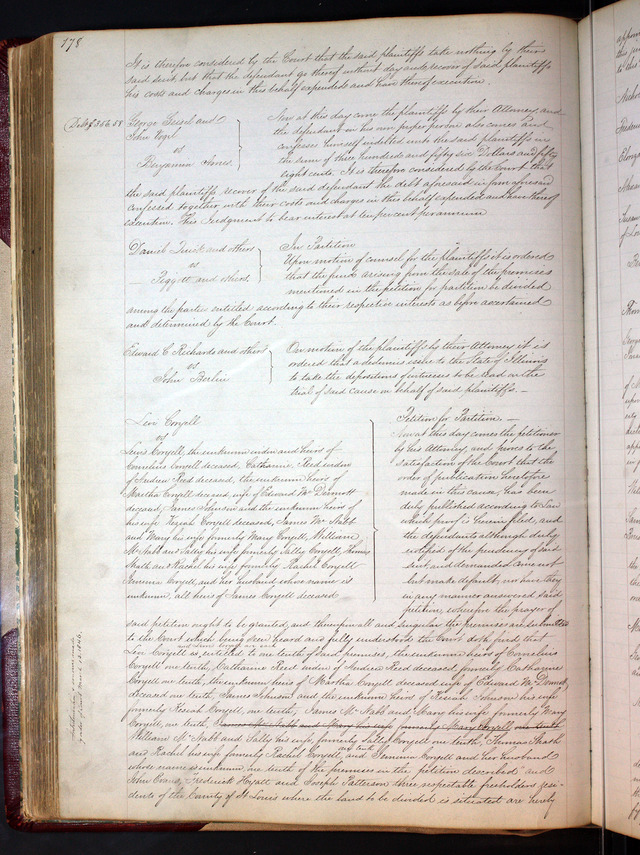 178
It is therefore considered by the Court that the said plaintiffs take nothing by their
said suit but that the defendant go thereof without day and recover of said plaintiffs
his costs and charges in this behalf expended and have thereof execution.
Debt $356.58
George Geisel and
John Vogel
vs
Benjamin
Now at this day come the plaintiffs by their Attorney and
the defendant in his own proper person also comes and
confesses himself indebted unto the said plaintiffs in
the sum of three hundred and fifty six Dollars and fifty
eight cents. It is therefore considered by the Court that
the said plaintiffs recover of the said defendant the debt aforesaid in form aforesaid
confessed together with their costs and charges in this behalf expended and have thereof
execution. This Judgment to bear interest at ten per cent per annum
Daniel Quick and others
vs
Piggott and others.
In Partition
Upon motion of counsel for the plaintiffs it is ordered
that the fund arising from the sale of the premises
mentioned in the petition for partition be divided
among the parties entitled according to their respective interests as before ascertained
and determined by the Court.
Edward C. Richards and others
vs
John Berlin
On motion of the plaintiffs by their Attorney it is
ordered that a dedimus issue to the State of Illinois
to take the depositions of witnesses to be read on the
trial of said cause in behalf of said plaintiffs. —
Levi Coryell
vs
Lewis Coryell, the unknown widow and heirs of
Cornelius Coryell deceased, Catharine Reed widow
of Andrew Reed deceased, the unknown heirs of
Martha Coryell deceased, wife of Edward McDermott
deceased, James Johnson and the unknown heirs of
his wife Keziah Coryell deceased, James McNabb
and Mary his wife formerly Mary Coryell, William
McNabb and Sally his wife formerly Sally Coryell,
and Rachel his wife formerly Rachel Coryell
Jemima Coryell, and her husband whose name is
unknown, all heirs of James Coryell deceased
Petition for Partition —
Now at this day comes the petitioner
by his Attorney, and proves to the
satisfaction of the Court that the
order of publication heretofore
made in this cause, has been
duly published according to Law
which proof is herein filed, and
the defendants although duly
notified of the pendency of said
suit and demanded come not
but make default, nor have they
in any manner answered said
petition, wherefore the prayer of
said petition ought to be granted, and thereupon all and singular the premises are submitted
to the Court which being seen heard and fully understood the Court doth find that
Levi Coryell is entitled to one tenth of said premises, the unknown heirs of Cornelius
Coryell one tenth, Catharine Reed widow of Andrew Reed deceased formerly Catharine
Coryell one tenth, the unknown heirs of Martha Coryell deceased wife of Edward McDermott,
deceased one tenth, James Johnson and the unknown heirs of Keziah Johnson his wife
formerly Keziah Coryell, one tenth, James McNabb and Mary his wife formerly Mary
Coryell, one tenth, James McNabb and Mary his wife formerly Mary Coryell one tenth
William McNabb and Sally his wife, formerly Sally Coryell one tenth,
and Rachel his wife formerly Rachel Coryell, one tenth and Jemima Coryell and her husband
whose name is unknown one tenth of the premises in the petition described and
John Evans, Frederick Hyatt and Joseph Patterson three respectable freeholders resi-
dents of the County of St Louis where the land to be divided is situated are hereby